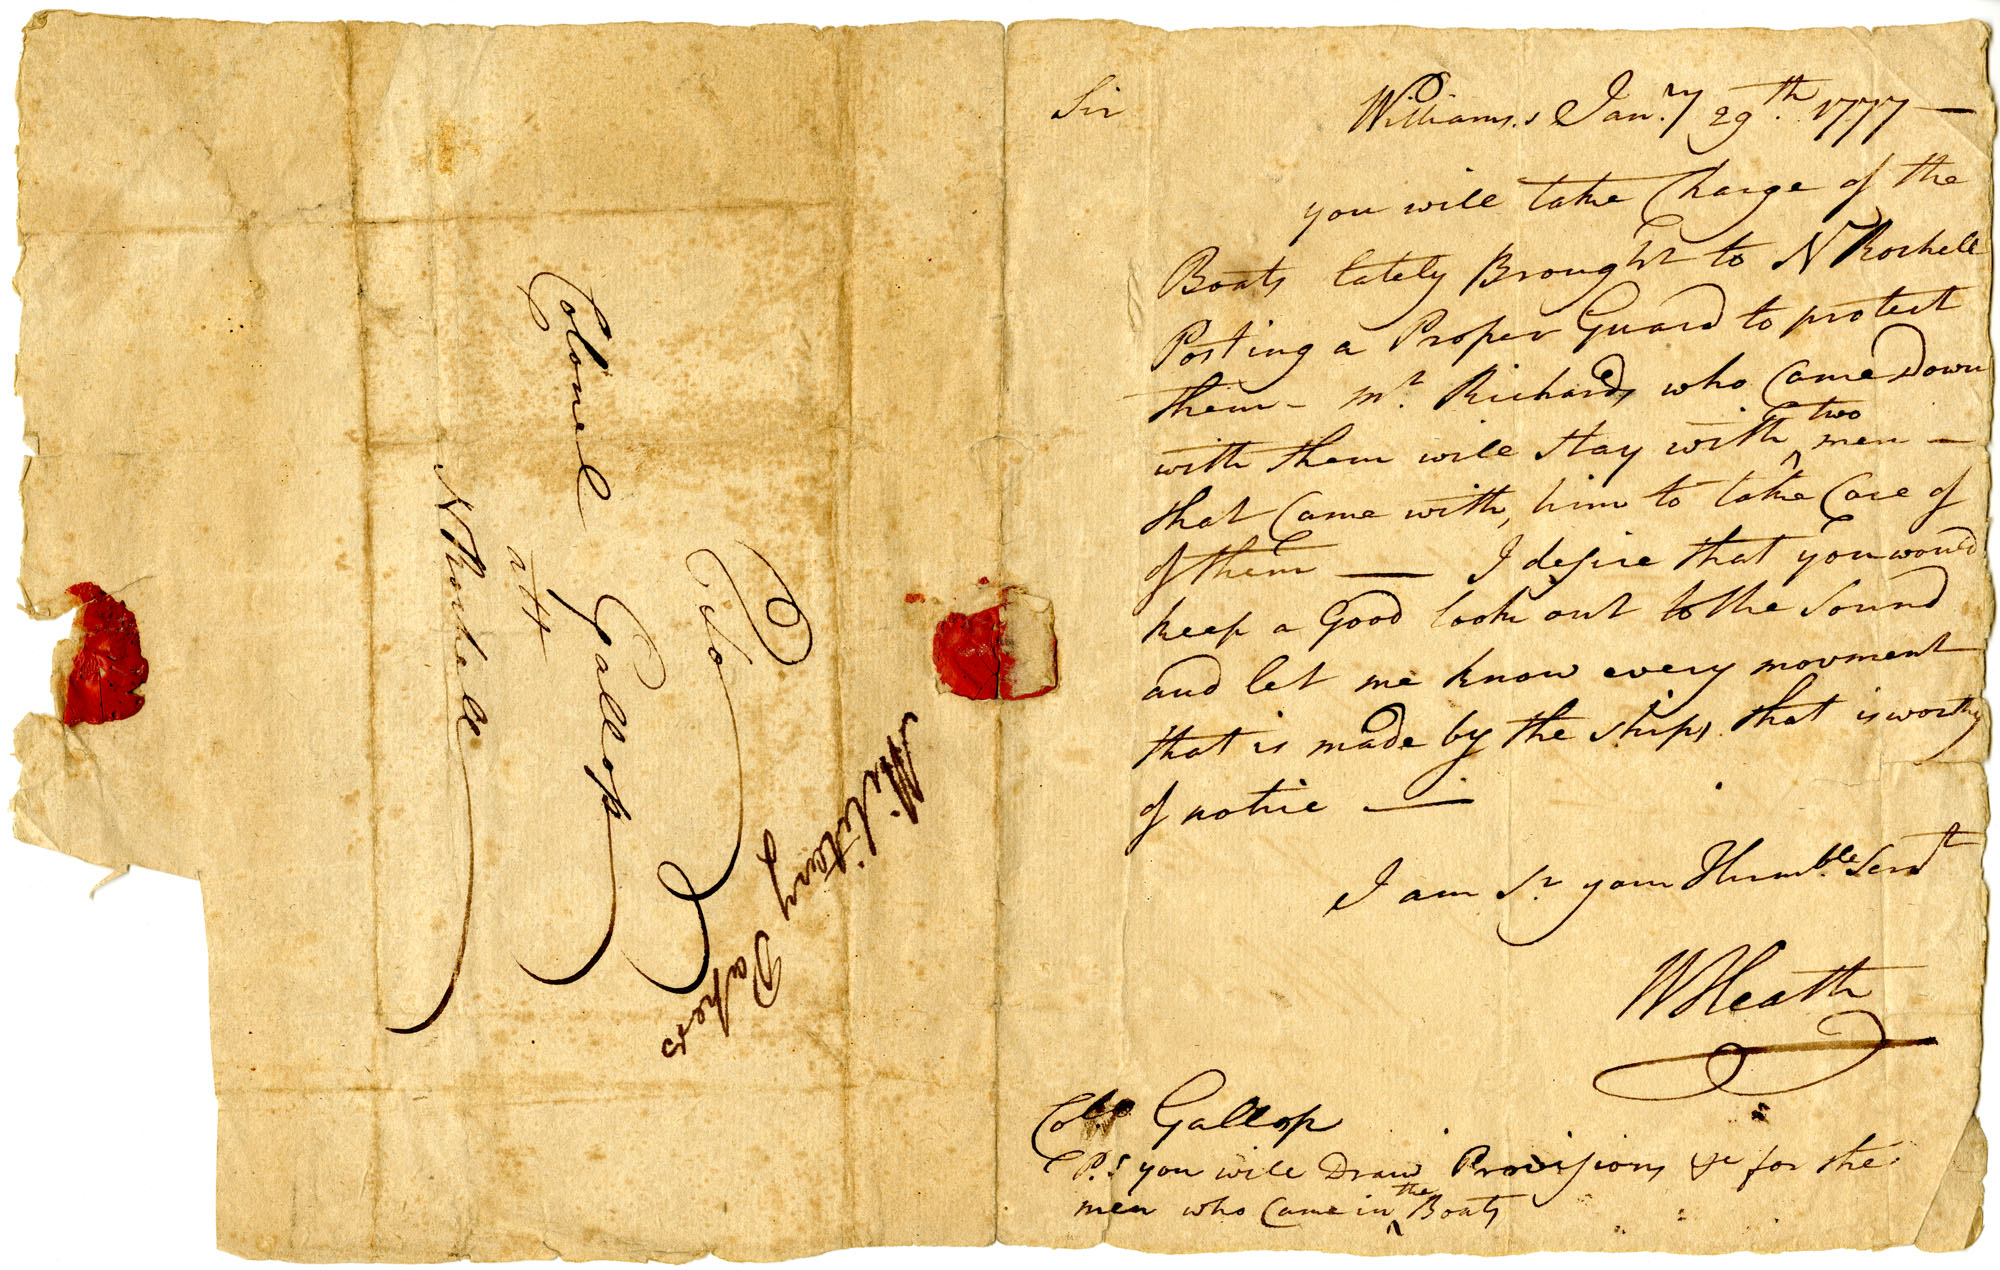 Colonel Gallop
att
N Rochell
Military Papers
Sir
Williams.s Jan.ry 29.th 1777 —
you will take Charge of the
Boats lately Brought to N Rochell
Posting a Proper Guard to protect
them – Mr. Richards who Came Down
with them will stay with two men —
that Came with, him to take Care of
of them — I desire that you would
keep a Good look out to the Sound
and let me know every movment
that is made by the ships that is worthy
of notice —
I am Sr. your Humble. Servt
W Heath
Colo. Gallop
P.S you will Draw Provisions &c for the
men who Came in the Boats